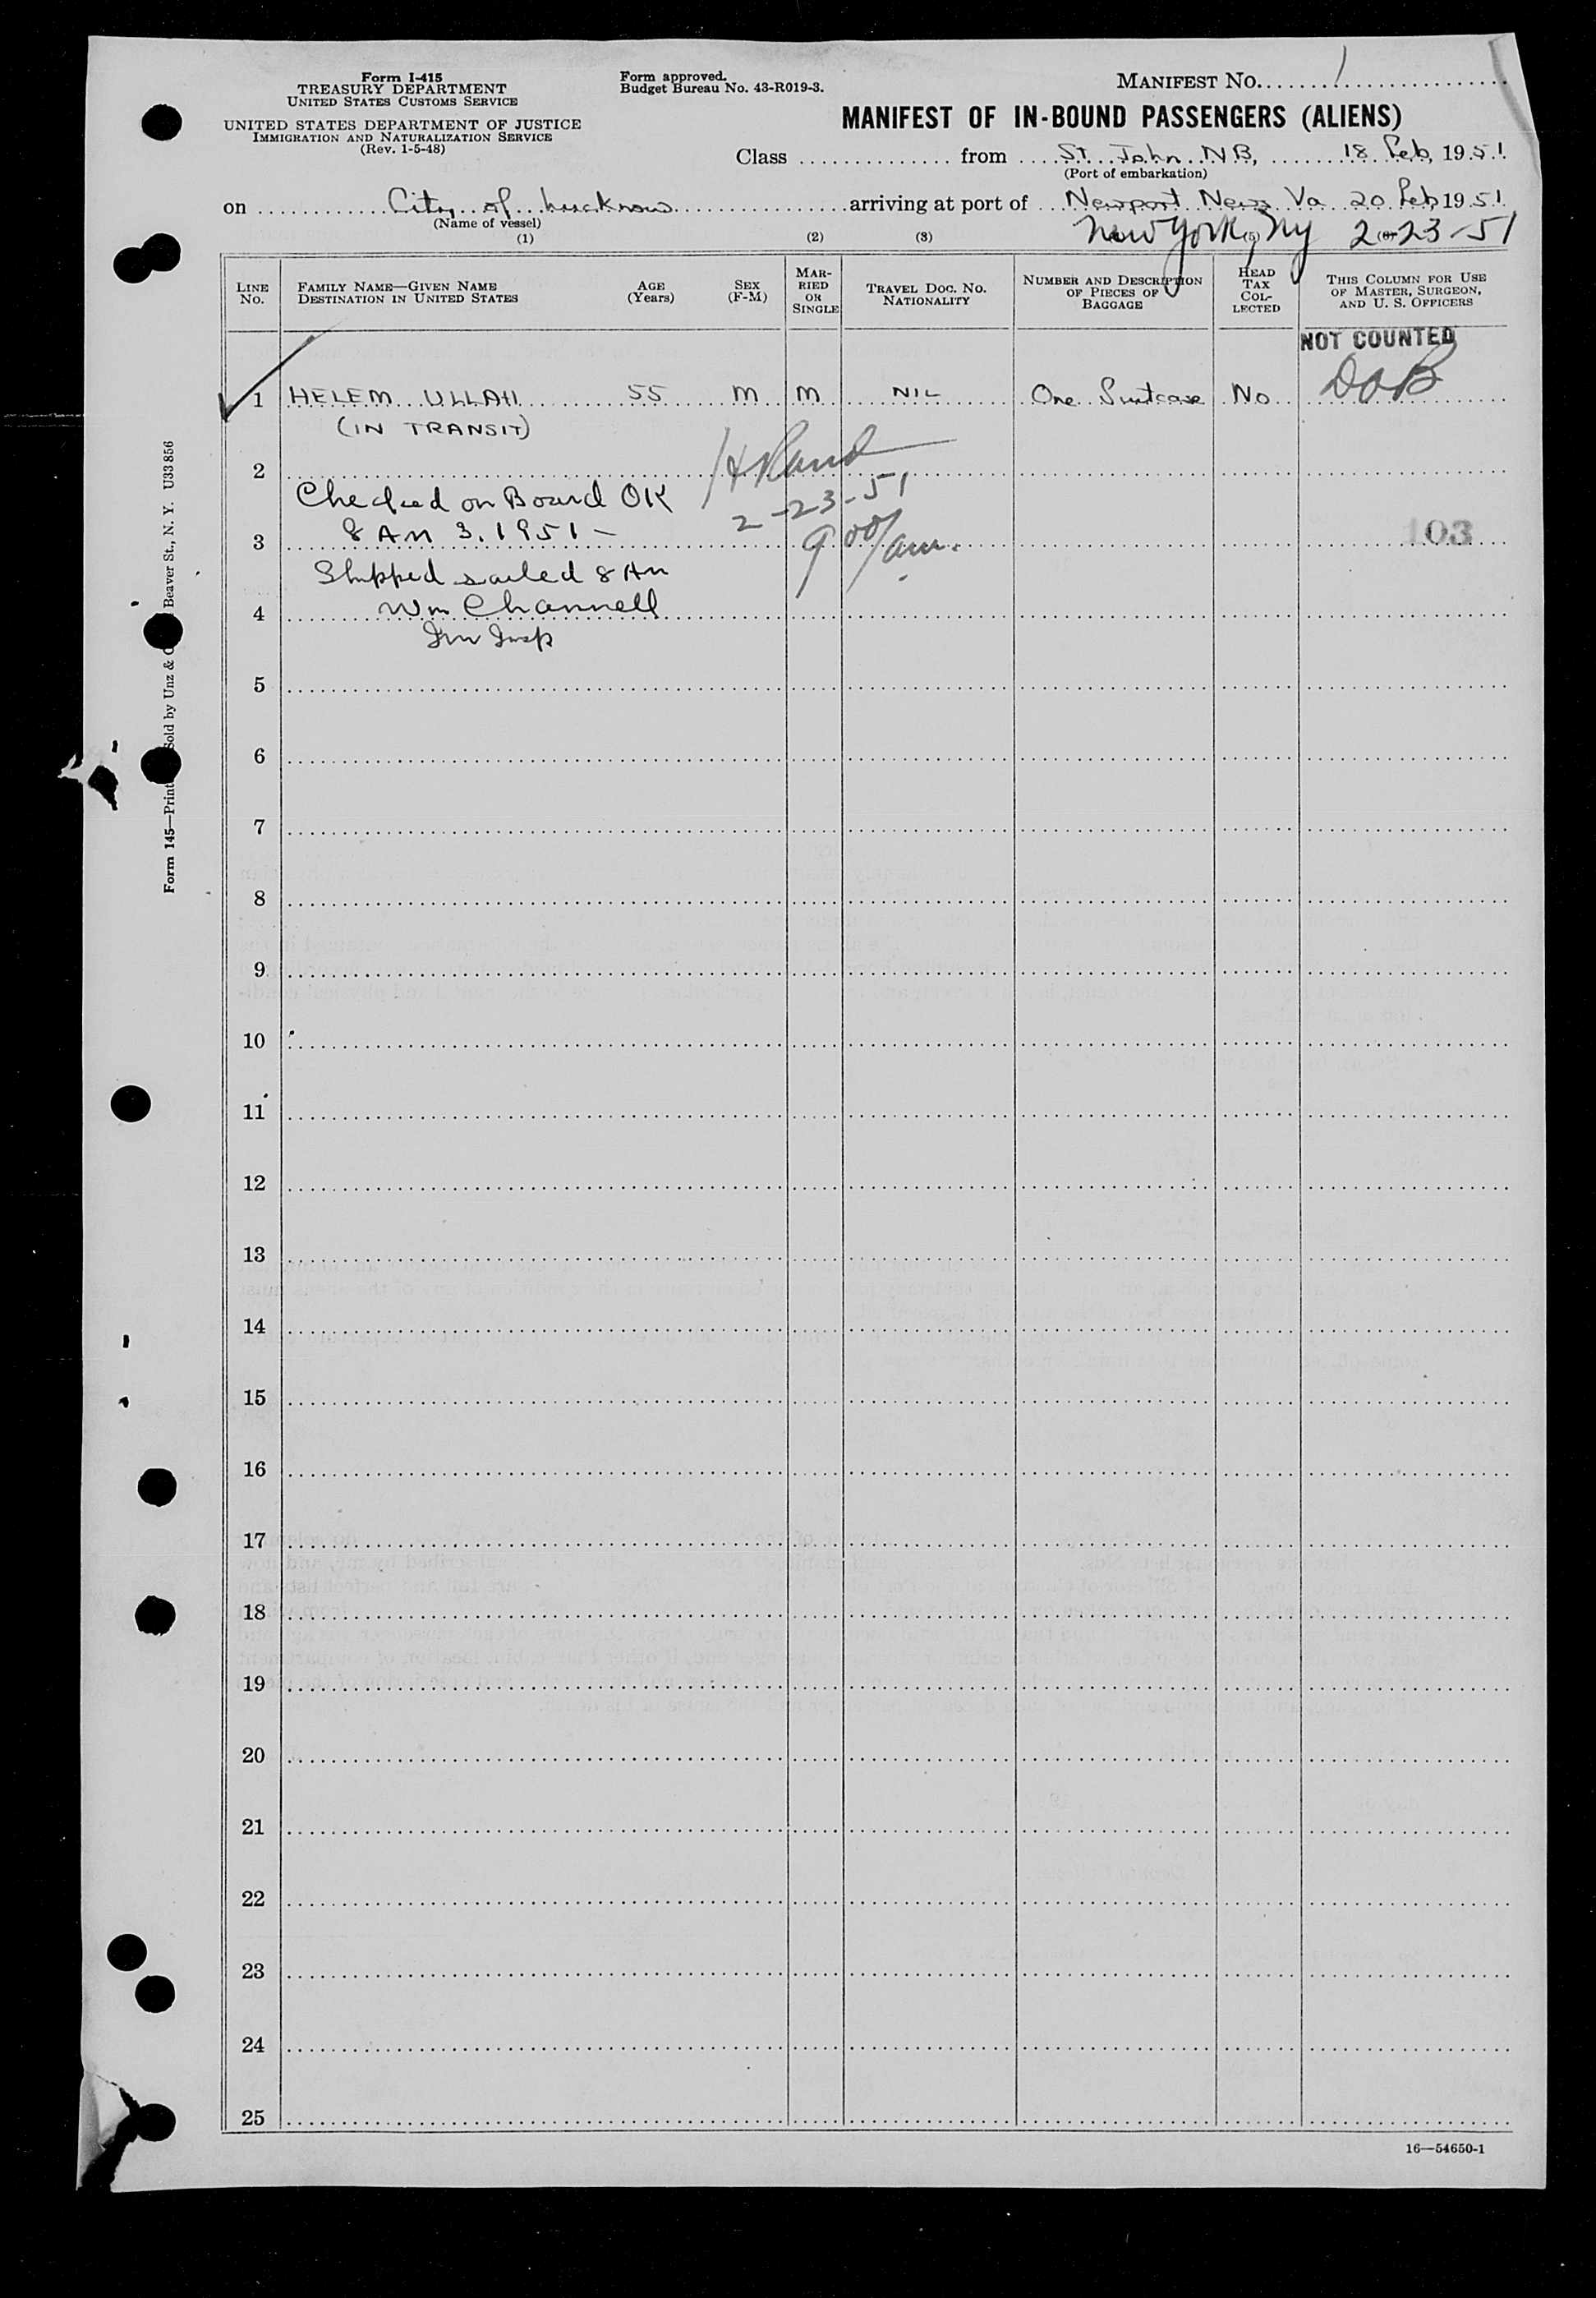 Form I-415
TREASURY DEPARTMENT
UNITED STATES CUSTOMS SERVICE
UNITED STATES DEPARTMENT OF JUSTICE
IMMIGRATION AND NATURALIZATION SERVICE
(Rev. 1-5-48)
Form approved.
Budget Bureau No. 43-R019-3.
MANIFEST NO. 1
MANIFEST OF IN-BOUND PASSENGERS (ALIENS)
Class from St. John NB, 18 Feb, 1951
(Port of embarkation)
on City of Lucknow arriving at port of Newport News Va 20 Feb 1951
(Name of vessel)
New York, NY 2-23-51
(1) (2) (3)
LINE NO. FAMILY NAME—GIVEN NAME DESTINATION IN UNITED STATES AGE (Years) SEX (F-M) MARRIED OR SINGLE TRAVEL DOC. NO. NATIONALITY NUMBER AND DESCRIPTION OF PIECES OF BAGGAGE HEAD TAX COLLECTED THIS COLUMN FOR USE OF MASTER, SURGEON, AND U. S. OFFICERS
NOT COUNTED
1 HELEM ULLAH 55 M M NIL One Suitcase No DOB
(IN TRANSIT)
2
Checked on Board OK
2-23-51
3 8 AM 3. 1951 — 9 00/am. 103
Shipped sailed 8 AM
4 Wm Channell
Imm Insp
5
6
7
8
9
10
11
12
13
14
15
16
17
18
19
20
21
22
23
24
25
16—54650-1
Form 145—Print Sold by Unz & C Beaver St., N. Y. U33856